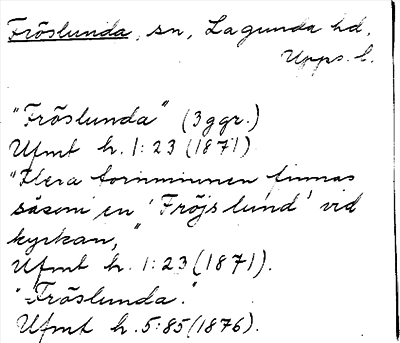 Fröslunda, sn, Lagunda hd,
Upps. l.
"Fröslunda" (3 ggr.)
Ufmt h. 1:23 (1871)
"Flera fornminnen finnas
såsom en 'Fröjs lund' vid
kyrkan,"
Ufmt h. 1:23 (1871).
"Fröslunda."
Ufmt h. 5:85 (1876).